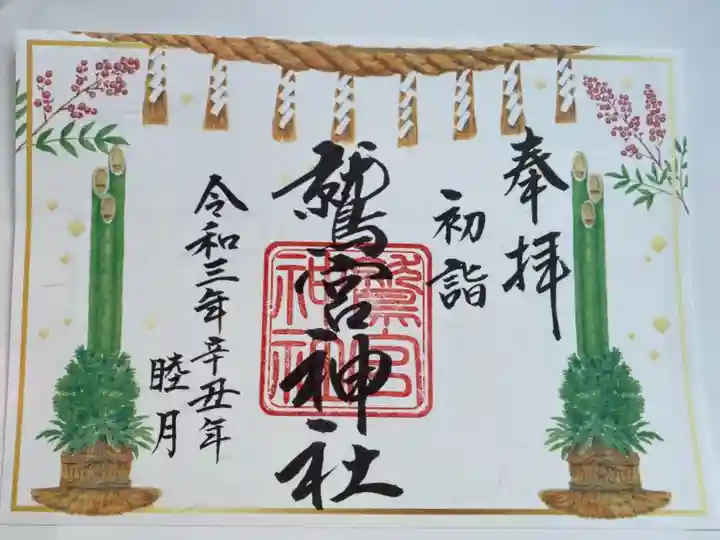 奉拝
初詣
鷲宮神社
鷲宮
神社
令和三年辛丑年
睦月